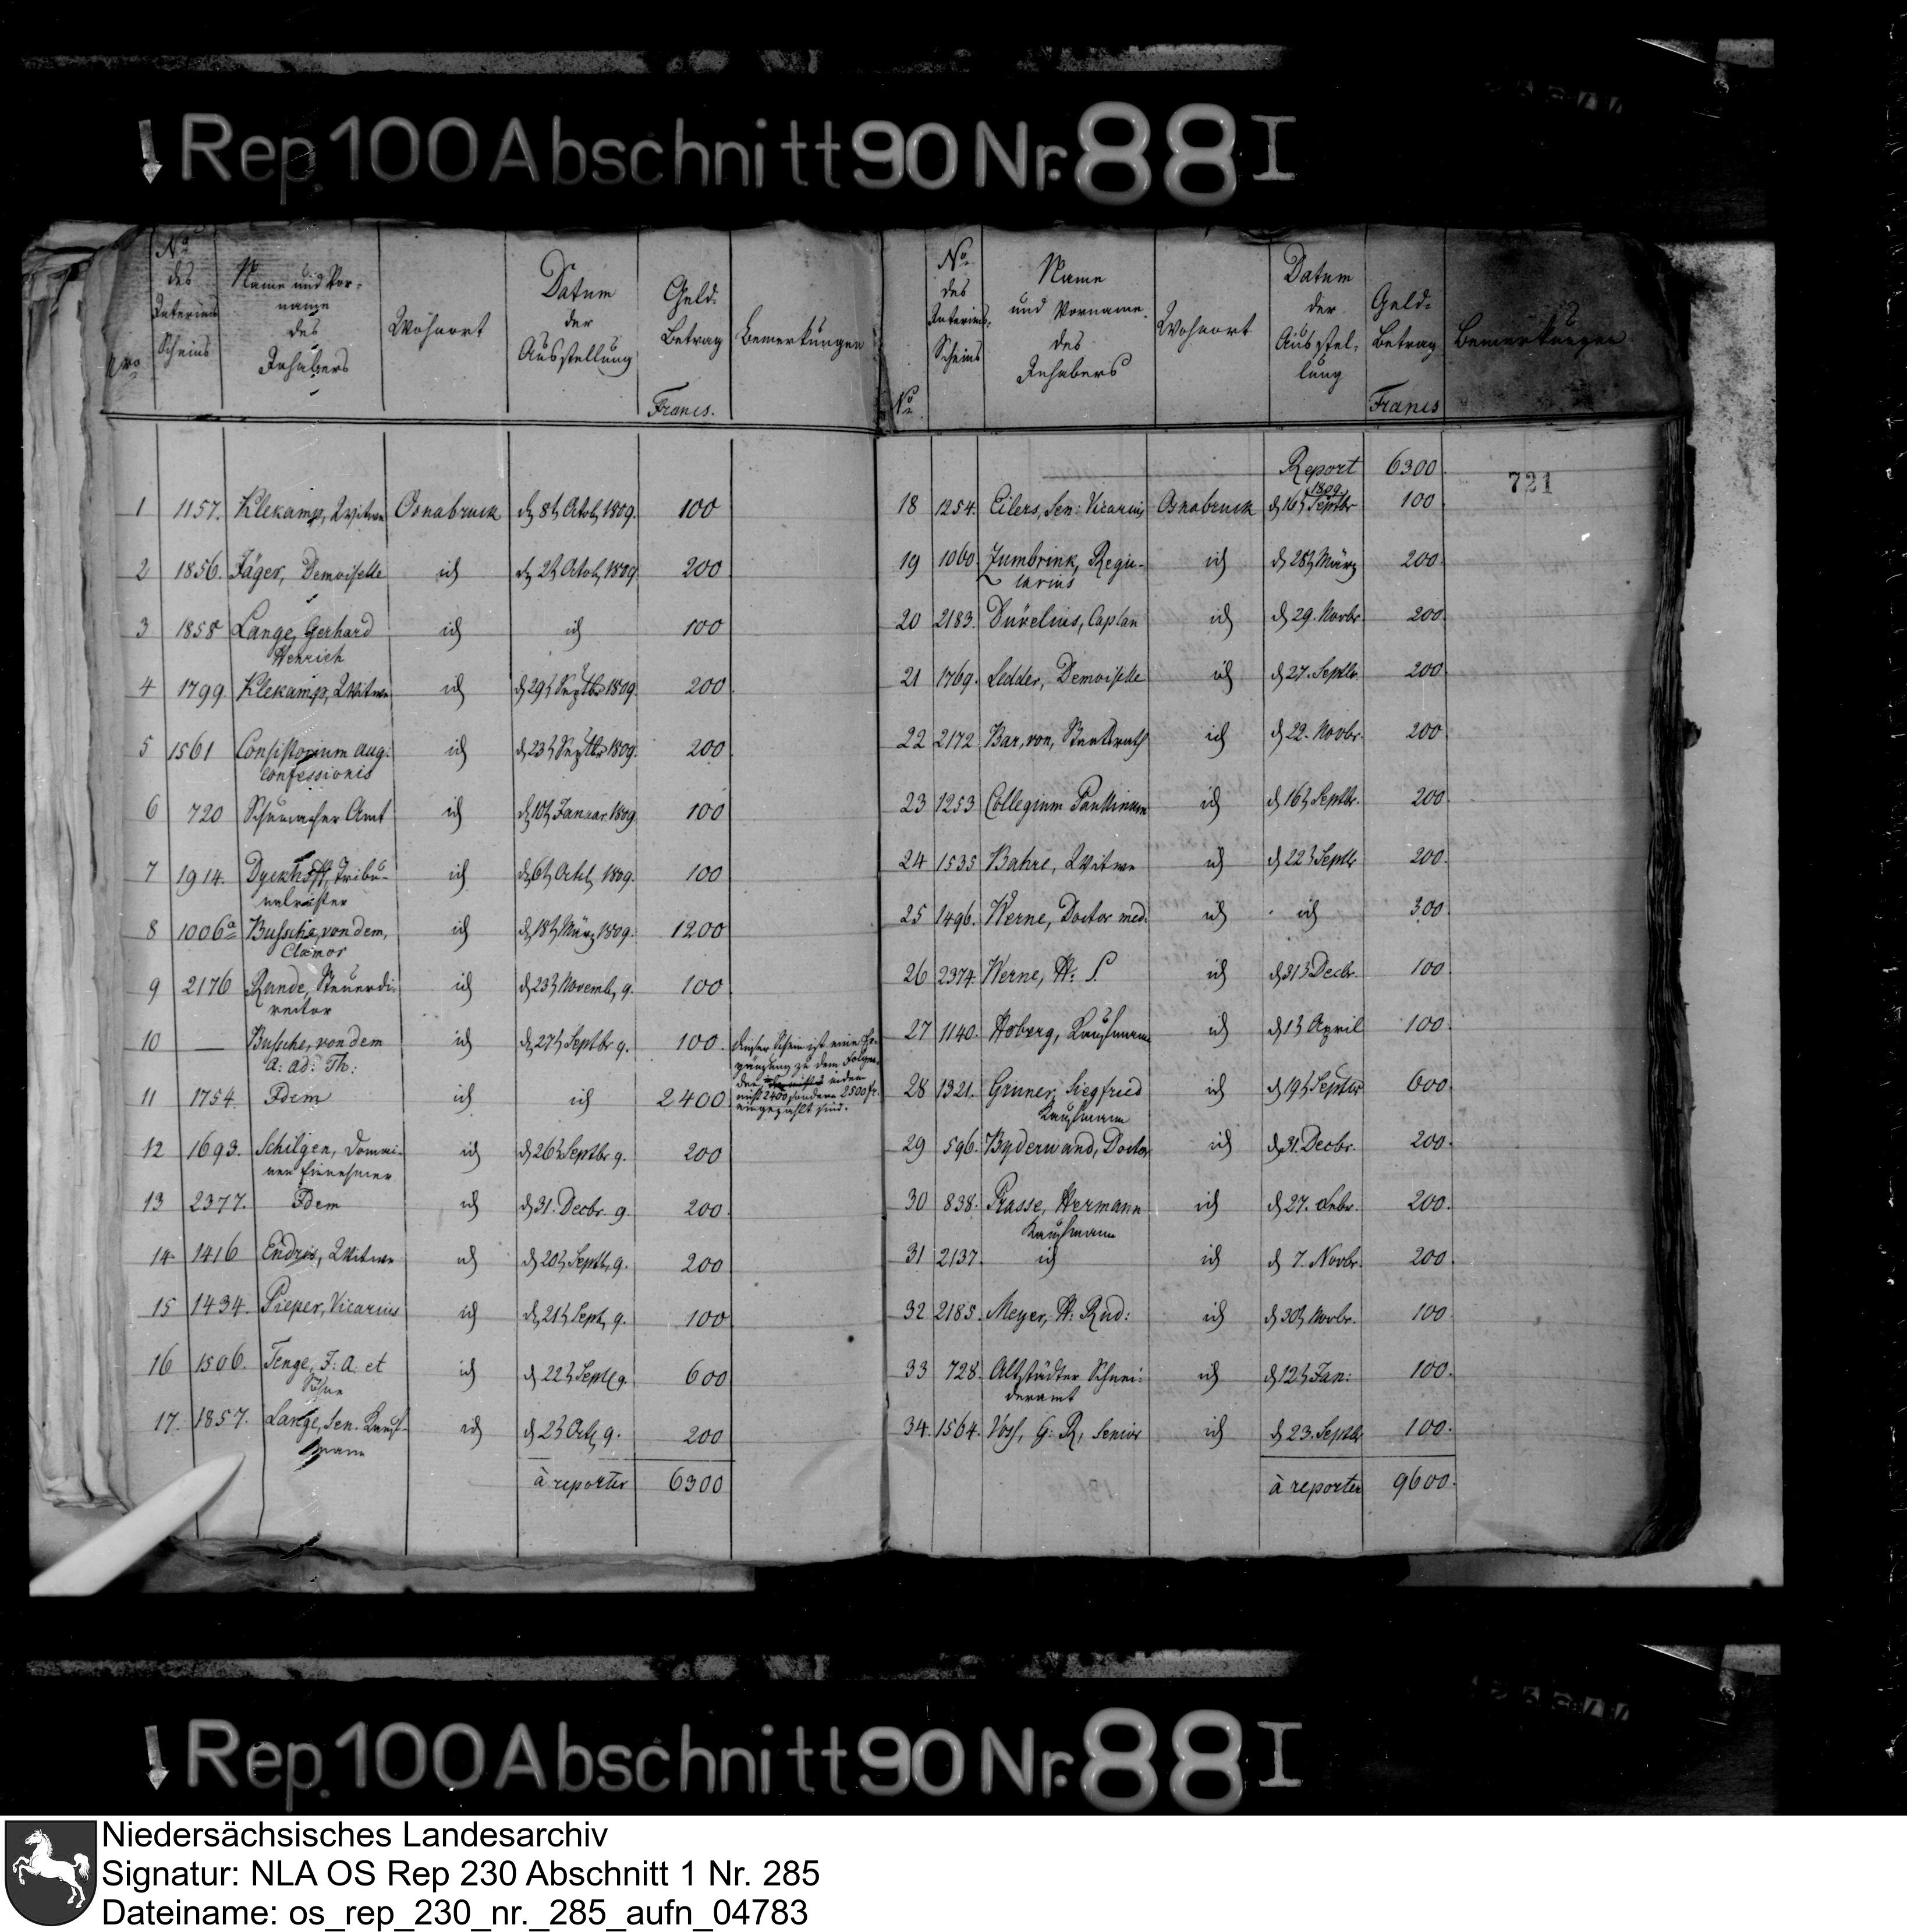 Rep. 100 Abschnitt 90 Nr. 88 I
Nro
No des Interims Scheins
Name und Vorname des Inhabers
Wohnort
Datum der Ausstellung
Geld-Betrag
Francs.
Bemerkungen
1 1157. Klekamp, Witwe Osnabruck d 8t Octob 1809. 100
2 1856. Jäger, Demoiselle id d 2t Octob 1809 200
3 1858 Lange, Gerhard id id 100
Henrich
4 1799 Klekamp, Witwe id d 29t Septbr 1809. 200
5 1561 Consistorium aug: id d 23t Septbr 1809. 200
confessionis
6 720 Schumacher Amt id d 10t Januar 1809 100
7 1914. Dyckhoff, Tribu- id d 6t Octob 1809. 100
nalrichter
8 1006a Bussche, von dem, id d 18t März 1809. 1200
Clamor
9 2176 Runde, Steuerdi- id d 23t Novemb 9. 100
rector
10 — Bussche, von dem id d 27t Septbr 9. 100. dieser Schein ist eine Er-
A: ad: Th: gänzung zu dem Folgen-
den indem
11 1754. Idem id id 2400 nicht 2400, sondern 2500 fr.
eingezahlt sind.
12 1693. Schilgen, Domai- id d 26t Septbr 9. 200
nen Einnehmer
13 2377. Idem id d 31. Decbr. 9. 200
14 1416 Witwe id d 20t Septb. 9. 200
15 1434. Pieper, Vicarius id d 21t Sept, 9. 100
16 1506. Tenge, F: A. et id d 22t Septb 9 600
Söhne
17. 1857. Lange, Sen. Kauf- id d 2t Octb 9. 200
mann
à reporter 6300
No
No des Interims-Scheins
Name und Vorname des Inhabers
Wohnort
Datum der Ausstellung
Geld-Betrag
Francs
Bemerkungen
Report 6300
721
1809.
18 1254. Eilers, Sen: Vicarius Osnabruck d 16t Septbr 100
19 1060 Zumbrink, Regis- id d 28t März 200
trarius
20 2183. Düvelius, Caplan id d 29. Novbr 200
21 1769. Ledder, Demoiselle id d 27. Septbr. 200
22 2172 Bar, von, Staatsrath id d 22. Novbr. 200
23 1253 Collegium Paullinum id d 16t Septbr. 200
24 1535 Bahre, Witwe id d 22t Septb 200.
25 1496. Werne, Doctor med. id id 300
26 2374. Werne, H: id d 31t Decbr. 100
27 1140. Hoberg, Kaufmann id d 1t April 100
28 1321. Gruner, Siegfried id d 19t Septbr 600
Kaufmann
29 596. Byderwand, Doctor id d 31. Decbr. 200.
30 838. Prasse, Hermann id d 27. Febr. 200.
Kaufmann
31 2137. id id d 7. Novbr. 200.
32 2185. Meyer, H: Rud: id d 30t Novbr. 100
33 728. Altstädter Schnei- id d 12t Jan: 100.
deramt
34. 1564. Voss, G: R, Senior id d 23. Septbr 100.
à reporter 9600.
Rep. 100 Abschnitt 90 Nr. 88 I
Niedersächsisches Landesarchiv
Signatur: NLA OS Rep 230 Abschnitt 1 Nr. 285
Dateiname: os_rep_230_nr._285_aufn_04783